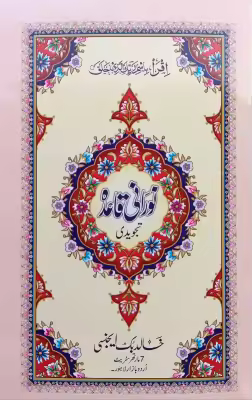 اِقْرَأْ بِاسْمِ رَبِّكَ الَّذِیْ خَلَقَ
نورانی قاعدہ
تجویدی
خالد بک ایجنسی
اُردو بازار لاہور۔